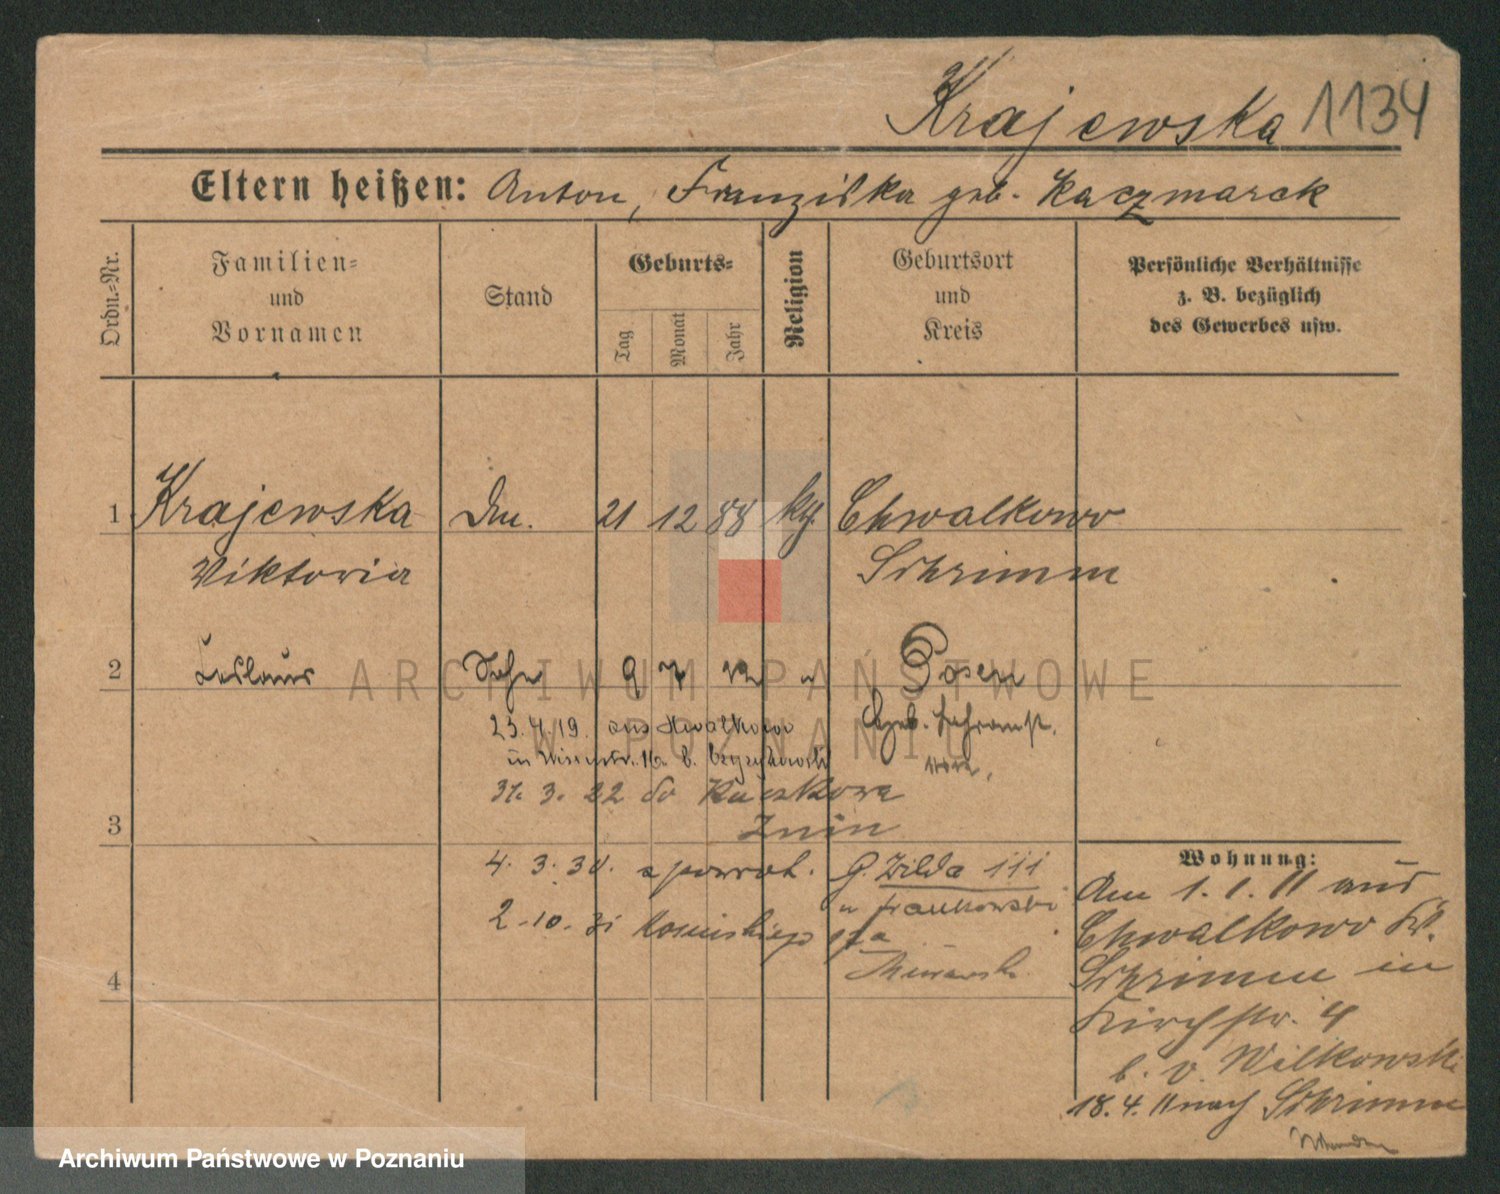 Krajewska 1134
Eltern heißen: Anton, Franziska geb. Kaczmarek
Ordn.=Nr.
Familien=
und
Vornamen
Stand
Geburts=
Tag
Monat
Jahr
Religion
Geburtsort
und
Kreis
Persönliche Verhältnisse
z. B. bezüglich
des Gewerbes usw.
1 Krajewska Dm. 21 12 88 kg. Chwalkowo
Viktoria Schrimm
2 Leslaus Sohn 9 Posen
23.4.19. aus Chwalkowo
in 16 b.
31. 3. 22 do
Znin
3
4. 3. 30. z powrot. G. Wilda 111
u Frankowski
2.10.31
4
Wohnung:
Am 1. 1. 11 aus
Chwalkowo Kr.
Schrimm in
Kirchstr. 4
b. v. Wilkowski
18. 4. 11 nach Schrimm
ARCHIWUM PAŃSTWOWE
W POZNANIU
Archiwum Państwowe w Poznaniu